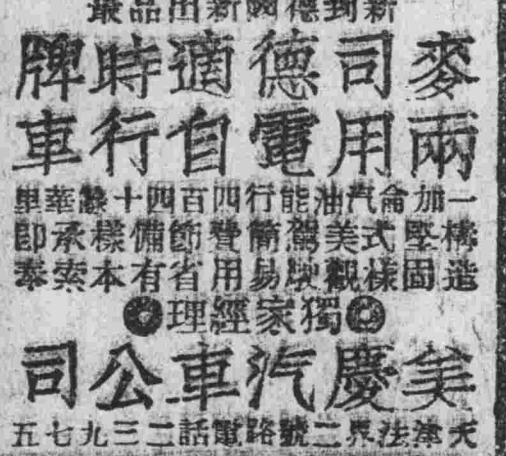 新到德國新出品最
麥司德適時牌
兩用電自行車
一加侖汽油能行四百四十餘華里
構造堅固式樣美觀駕駛簡易費用節省備有樣本承索即奉
獨家經理
美慶汽車公司
天津法界二號路電話二三九七五